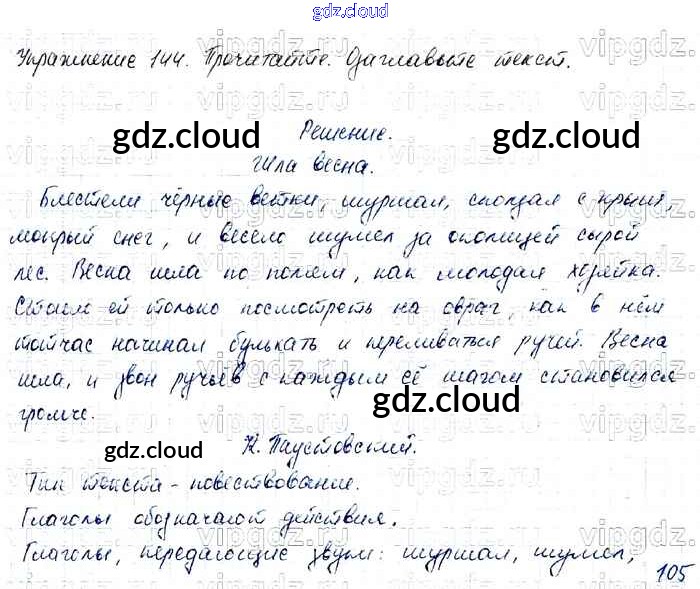 gdz.cloud
Упражнение 144. Прочитайте. Озаглавьте текст.
Решение.
gdz.cloud gdz.cloud
Шла весна.
Блестели чёрные ветки, шуршал, сползал с крыш,
мокрый снег, и весело шумел за околицей сырой
лес. Весна шла по полям, как молодая хозяйка.
Стоило ей только посмотреть на овраг, как в нём
тотчас начинал булькать и переливаться ручей. Весна
шла, и звон ручьёв с каждым её шагом становился
громче.
gdz.cloud
К. Паустовский.
gdz.cloud
Тип текста - повествование.
Глаголы обозначают действия.
Глаголы, передающие звуки: шуршал, шумел,
105
vipgdz.ru